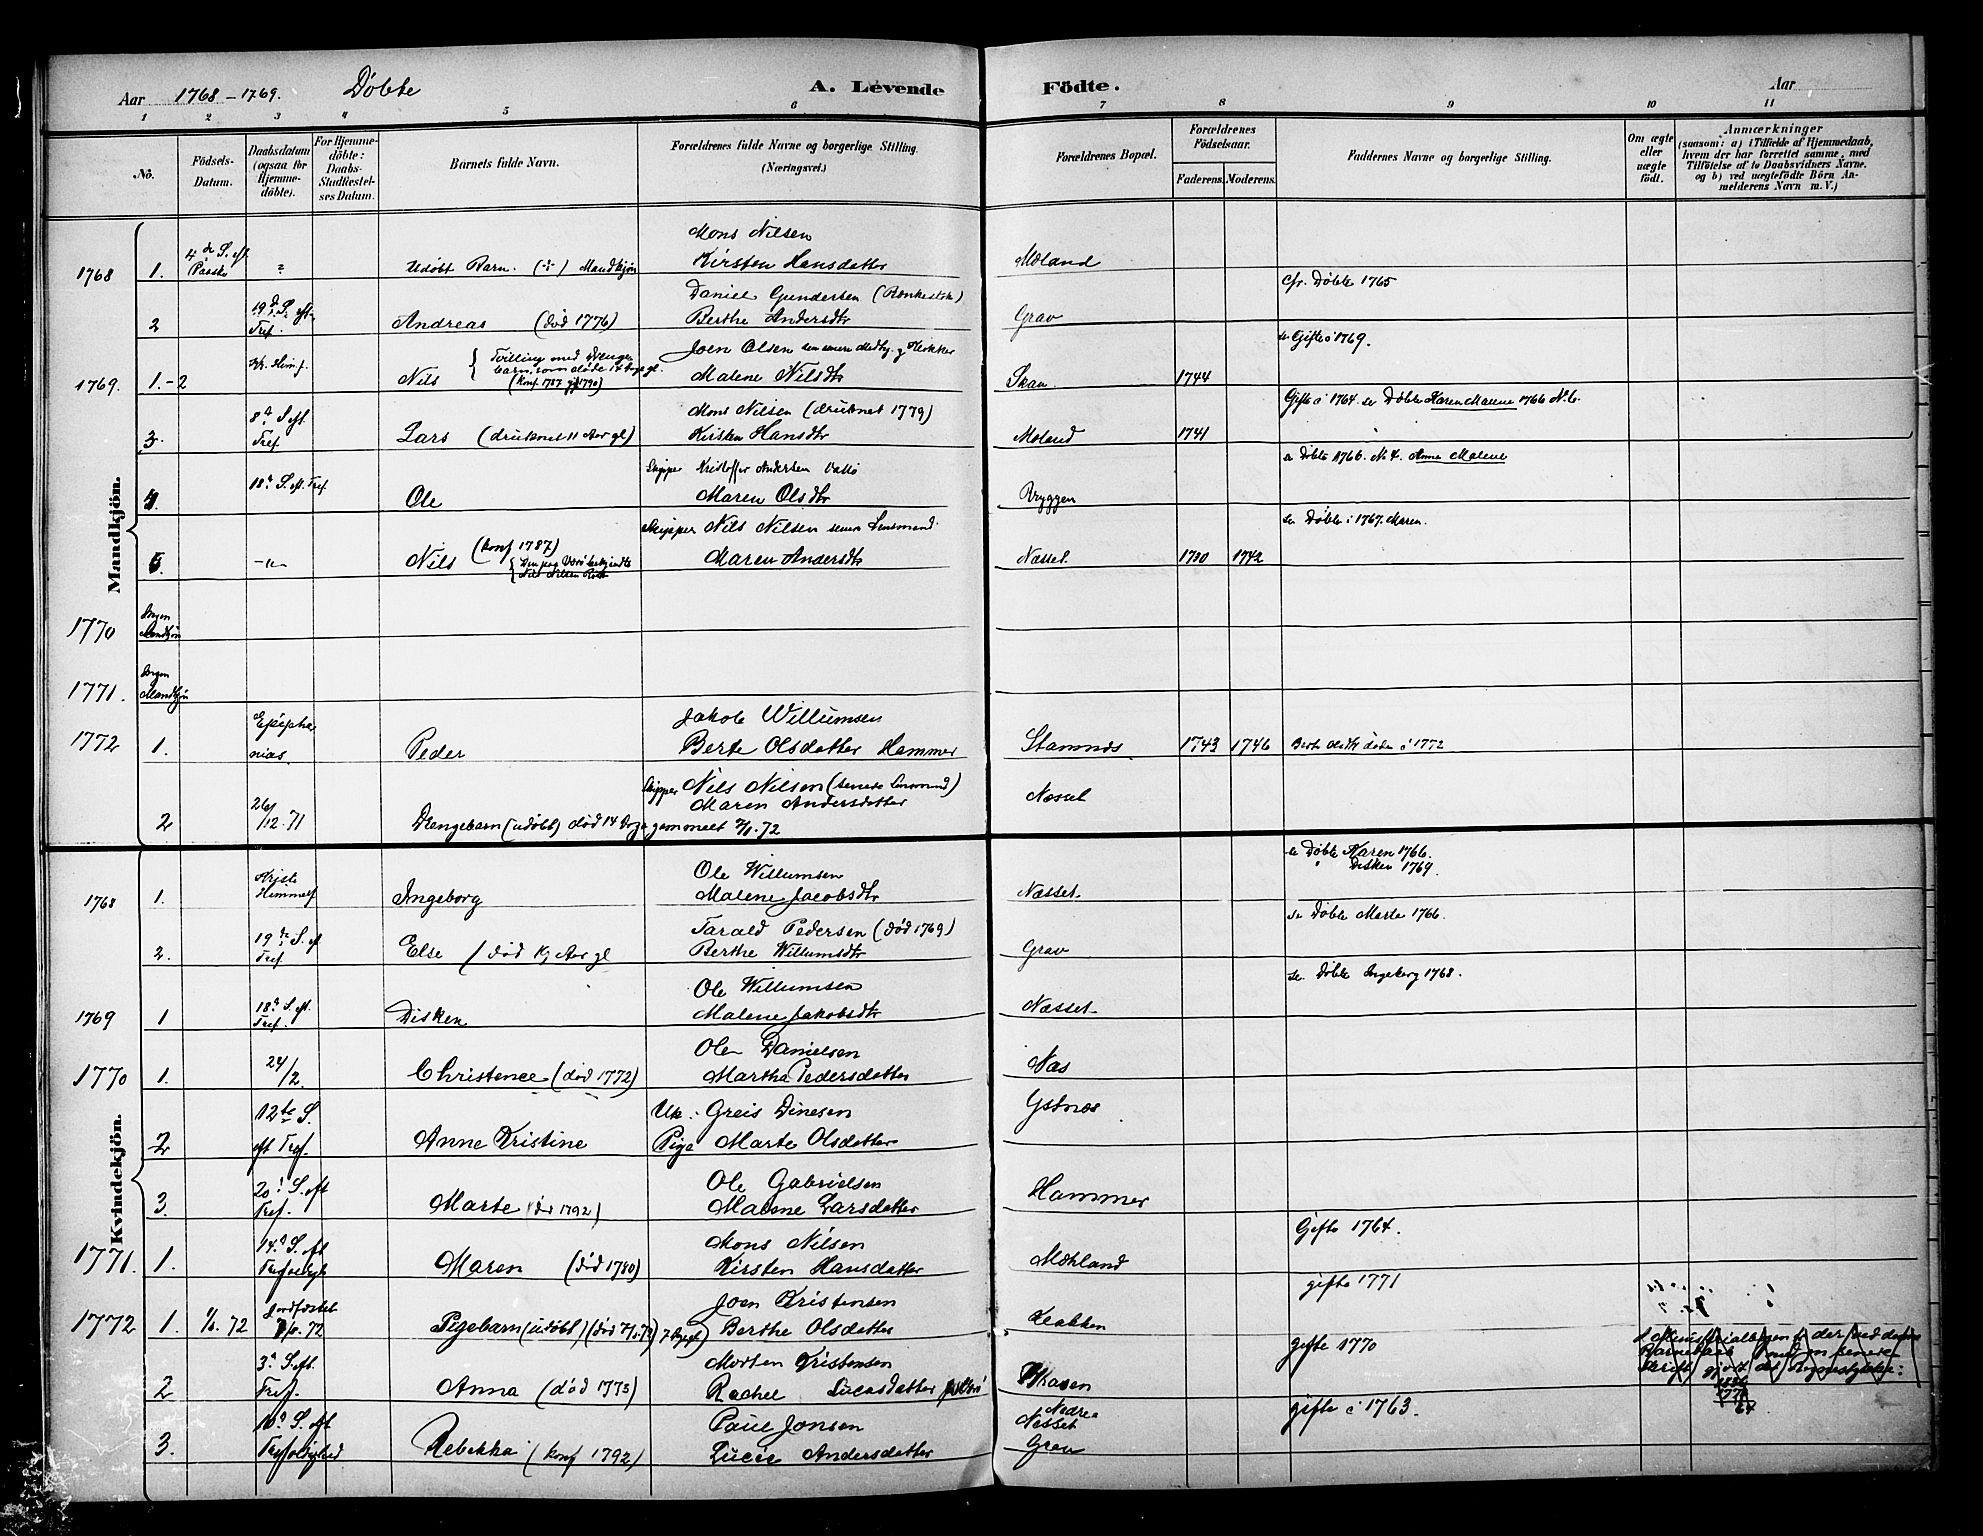 Aar 1768-1769. Døbte A. Levende Födte. Aar
1 2 3 4 5 6 7 8 9 10 11
No.
Födsels-Datum.
Daabsdatum (ogsaa for Hjemme-döbte).
For Hjemme-döbte: Daabs-Stadfæstel-ses Datum.
Barnets fulde Navn.
Forældrenes fulde Navne og borgerlige Stilling. (Næringsvei.)
Forældrenes Bopæl.
Forældrenes Födselsaar.
Faderens. Moderens.
Faddernes Navne og borgerlige Stilling.
Om ægte eller uægte födt.
Anmærkninger
(saasom: a) i Tilfælde af Hjemmedaab, hvem der har forrettet samme, med Tilföielse af to Daabsvidners Navne. og b) ved uægtefödte Börn An-melderens Navn m. V.)
Mandkjön.
Mons Nilsen
1768 1. 4de S. eft. Paaske Udøbt Barn. Mandkjøn Kirsten Hansdatter Moland
Daniel Gundersen cfr. Døbte 1765
2 19de S. eft. Tref. Andreas (død 1776) Berthe Andersdtr Grav
Joen Olsen se Gifte i 1769.
1769. 1-2 Kr. Himf. Nils Tvilling med Drenge Barn, som døde (konf. 1787 gift 1790) Malene Nilsdtr Skau 1744
Mons Nilsen (druknet 1779) Gifte i 1764. se Døbte Karen Marie 1766 N. 6.
3. 8de S. eft. Tref. Lars (druknet 11 Aar gl) Kirsten Hansdtr Moland 1741
Skipper Kristoffer Andersen se Døbte 1766. N. 4. Anne Malene
4. 18de S. eft. Tref Ole Maren Olsdtr Bryggen
Skipper Nils Nilsen senere Lensmand se Døbte i 1767. Maren.
5. -"- Nils (konf 1787) Maren Andersdtr Næsset 1730 1742
1770 Ingen Mandkjøn
1771. Ingen Mandkjøn
Jakob Willumsen
1772 1. Epiphanias. Peder Berte Olsdatter Hammer Stamnes 1743 1746 Berte Olsdtr døde i 1772
Skipper Nils Nilsen (senere Lensmand)
Maren Andersdatter Næsset
2 26/12. 71 Drengebarn (udøbt) død 14 Dage gammelt 72
Kvindekjön.
Ole Willumsen se Døbte Karen 1766.
" Disken 1769.
1768 1. Kristi Himmelf. Ingeborg Malene Jacobsdtr Næsset.
Tarald Pedersen (død 1769) se Døbte Marte 1766.
2. 19de S. eft Tref. Else (død Aar gl Berthe Willumsdtr Grav
Ole Willumsen se Døbte Ingeborg 1768.
1769 1 18de S. eft. Tref. Disken Malene Jakobsdtr Næsset
Ole Danielsen
1770 1. 24/2. Christence (død 1772) Martha Pedersdatter Næs
Uk. Greis Dinesen Ystnæs
2 12te S. eft Tref. Anne Kristine Pige Marte Olsdatter
Ole Gabrielsen
3. 20de S. eft Tref. Marte (død 1792) Malene Larsdatter Hammer
Mons Nilsen Gifte 1764.
1771. 1. 14de S. eft Trefoldigh Maren (død 1780) Kirsten Hansdatter Mohland
Joen Kristensen gifte 1771
1772 1. 72 Jordfæstet 72 Pigebarn (udøbt) (død 72) Berthe Olsdatter
Morten Kristensen gifte 1770
2 3de S. eft. Tref. Anna (død 1773) Rachel Lucasdatter Skaven
Paul Jonsen Nedre Næsset gifte i 1763.
3. 10de S. eft Trefoldighed Rebekka (konf 1792) Lucie Andersdatter Grav